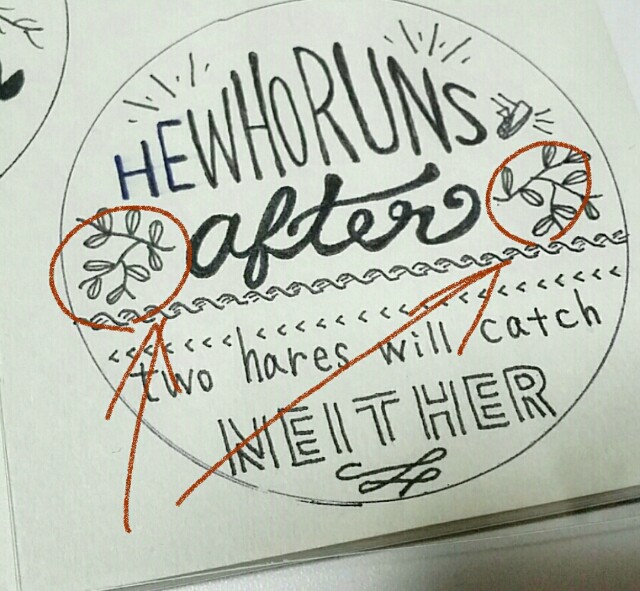 HE WHO RUNS
after
two hares will catch
NEITHER